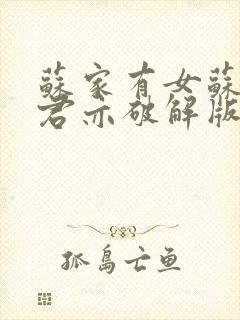 蘇家有女蘇
君亦破解版
孤島亡鱼